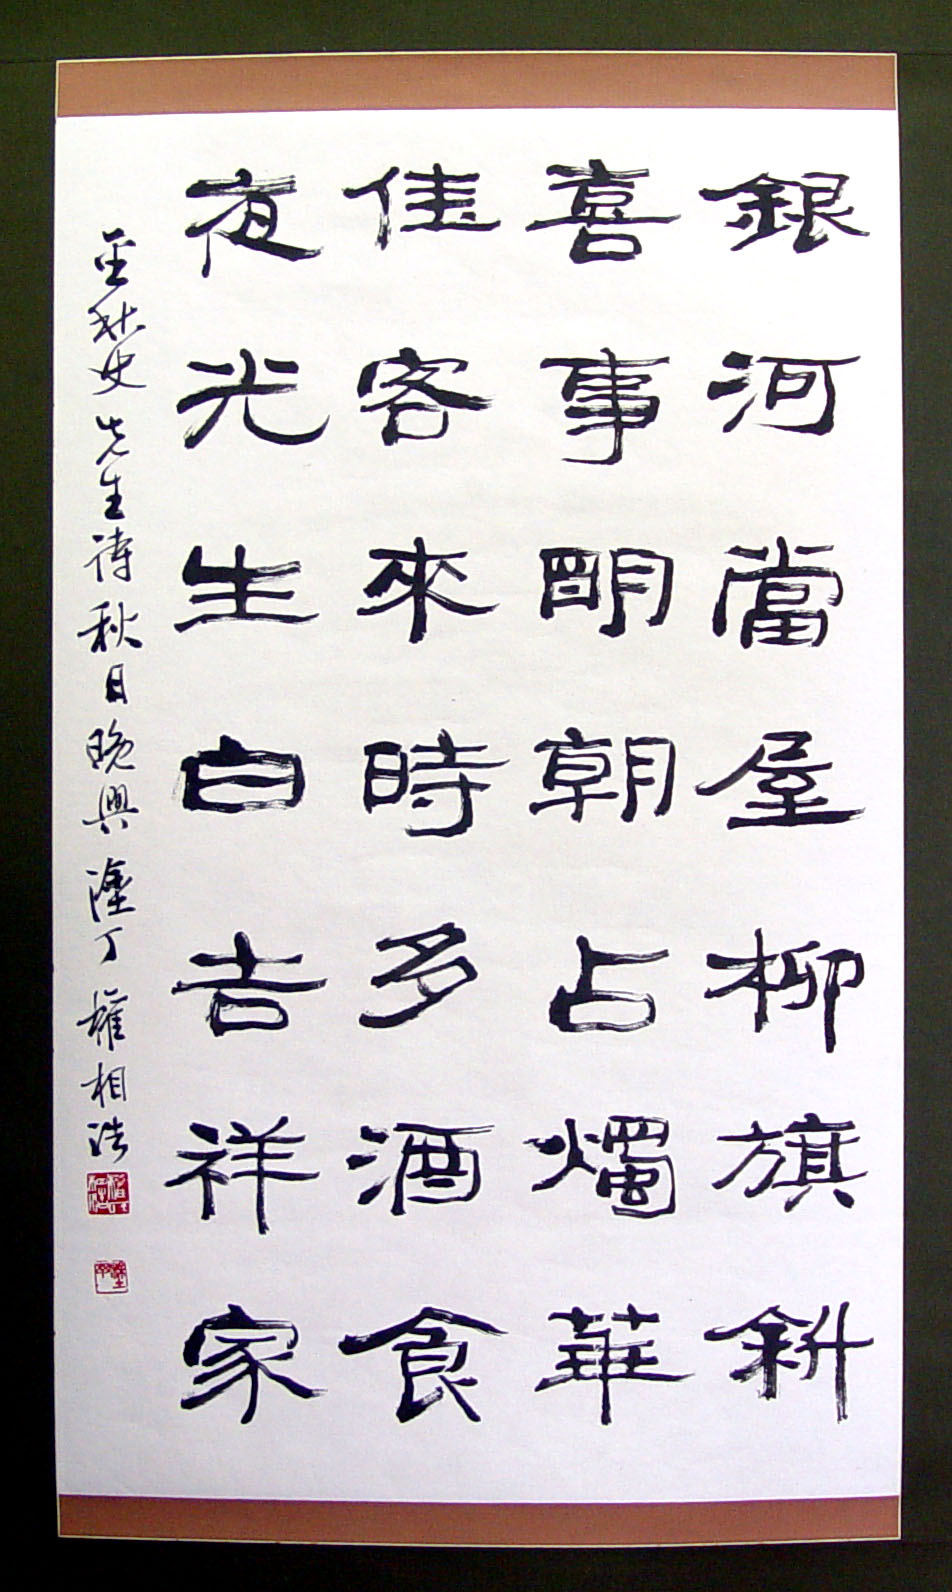 銀河當屋柳旗斜
喜事明朝占燭華
佳客來時多酒食
夜光生白吉祥家
金秋史先生詩秋日晚興塗丁權相浩